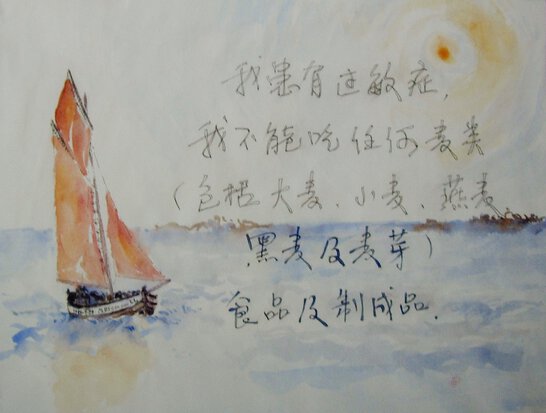 我患有过敏症,
我不能吃任何麦类
(包括大麦、小麦、燕麦、
黑麦及麦芽)
食品及制成品.